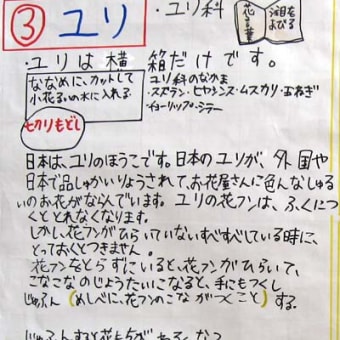 ③ ユリ
・ユリ科
花言葉
・ユリは横箱だけです。
ななめに、カットして
小花るいの水に入れる
ユリ科のなかま
・スズラン・ヒヤシンス・ムスカリ・玉ねぎ
・チューリップ・シラー
七刀りもどし
日本は、ユリのほうこです。日本のユリが、外国や
日本で品しゅかいりょうされて、お花屋さんに色んなしゅる
いのお花がならんでいます。ユリの花フンは、ふくにつ
くととれなくなります。
しかし、花フンがひらいていないすべすべしている時に、
とっておくとつきません。
花フンをとらずにいると、花フンがひらいて、
こなこなのじょうたいになると、手にもつくし
じゅふん(めしべに、花フンのこながつくこと)する。